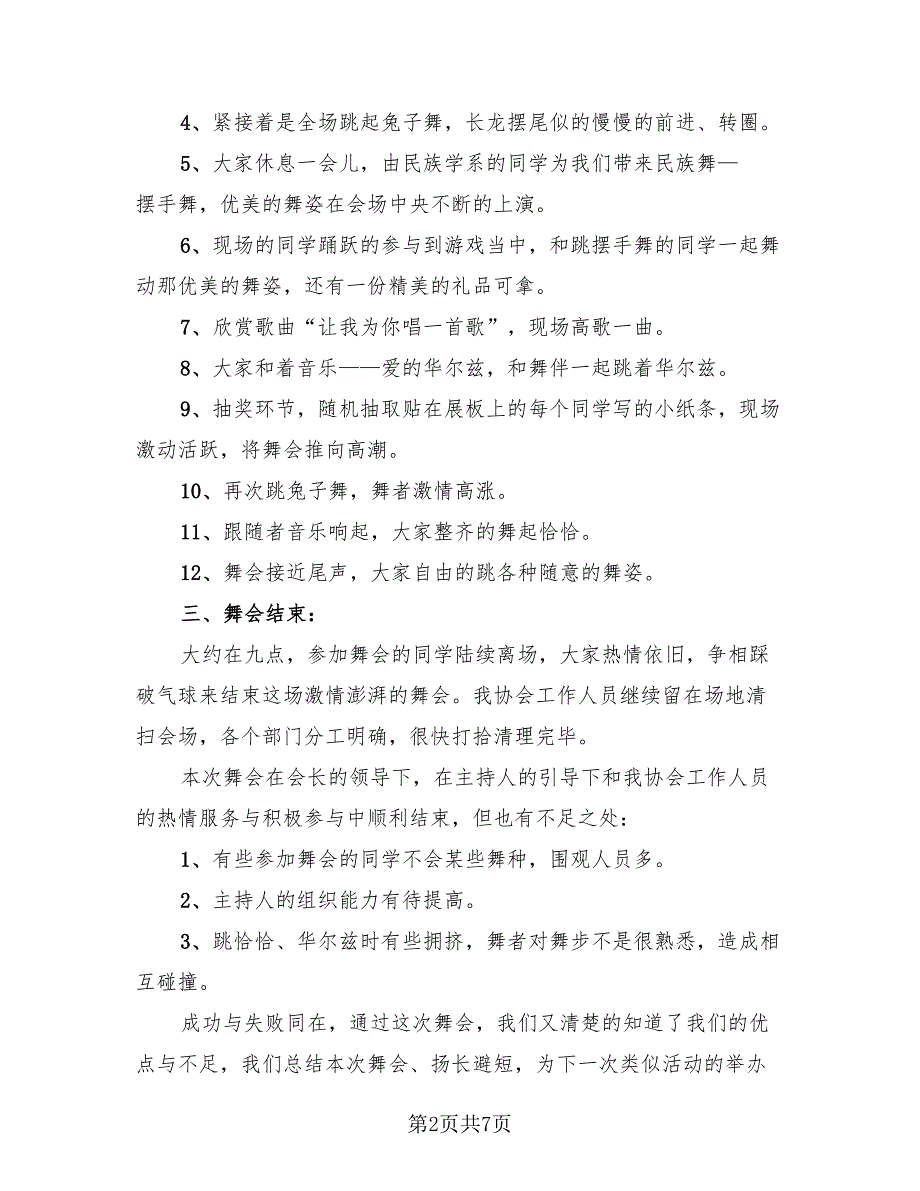 4、紧接着是全场跳起兔子舞，长龙摆尾似的慢慢的前进、转圈。
5、大家休息一会儿，由民族学系的同学为我们带来民族舞—
摆手舞，优美的舞姿在会场中央不断的上演。
6、现场的同学踊跃的参与到游戏当中，和跳摆手舞的同学一起舞
动那优美的舞姿，还有一份精美的礼品可拿。
7、欣赏歌曲“让我为你唱一首歌”，现场高歌一曲。
8、大家和着音乐——爱的华尔兹，和舞伴一起跳着华尔兹。
9、抽奖环节，随机抽取贴在展板上的每个同学写的小纸条，现场
激动活跃，将舞会推向高潮。
10、再次跳兔子舞，舞者激情高涨。
11、跟随者音乐响起，大家整齐的舞起恰恰。
12、舞会接近尾声，大家自由的跳各种随意的舞姿。
三、舞会结束：
大约在九点，参加舞会的同学陆续离场，大家热情依旧，争相踩
破气球来结束这场激情澎湃的舞会。我协会工作人员继续留在场地清
扫会场，各个部门分工明确，很快打拾清理完毕。
本次舞会在会长的领导下，在主持人的引导下和我协会工作人员
的热情服务与积极参与中顺利结束，但也有不足之处：
1、有些参加舞会的同学不会某些舞种，围观人员多。
2、主持人的组织能力有待提高。
3、跳恰恰、华尔兹时有些拥挤，舞者对舞步不是很熟悉，造成相
互碰撞。
成功与失败同在，通过这次舞会，我们又清楚的知道了我们的优
点与不足，我们总结本次舞会、扬长避短，为下一次类似活动的举办
第2页共7页